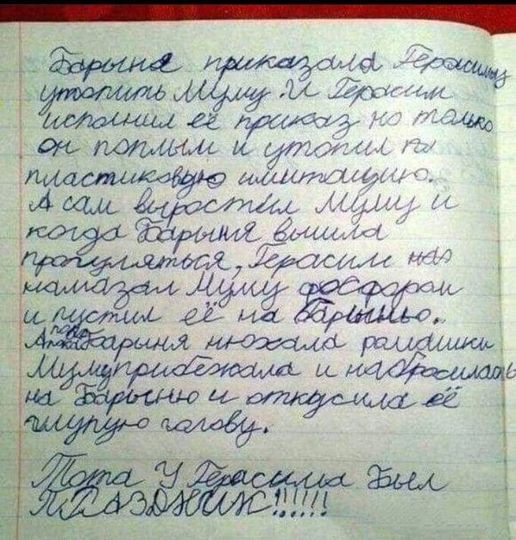 Барыня приказала Герасиму
утопить Муму. И Герасим
исполнил её приказ но только
он поплыл и утопил
пластиковую имитацию.
А сам вырастил Муму и
когда Барыня вышла
прогуляться, Герасим
намазал Муму фосфором
и пустил её на Барыню.
А пока Барыня нюхала ромашки
Муму прибежала и набросилась
на Барыню и откусила её
глупую голову.
Тота У Герасима был
ПРАЗДНИК!!!!!!